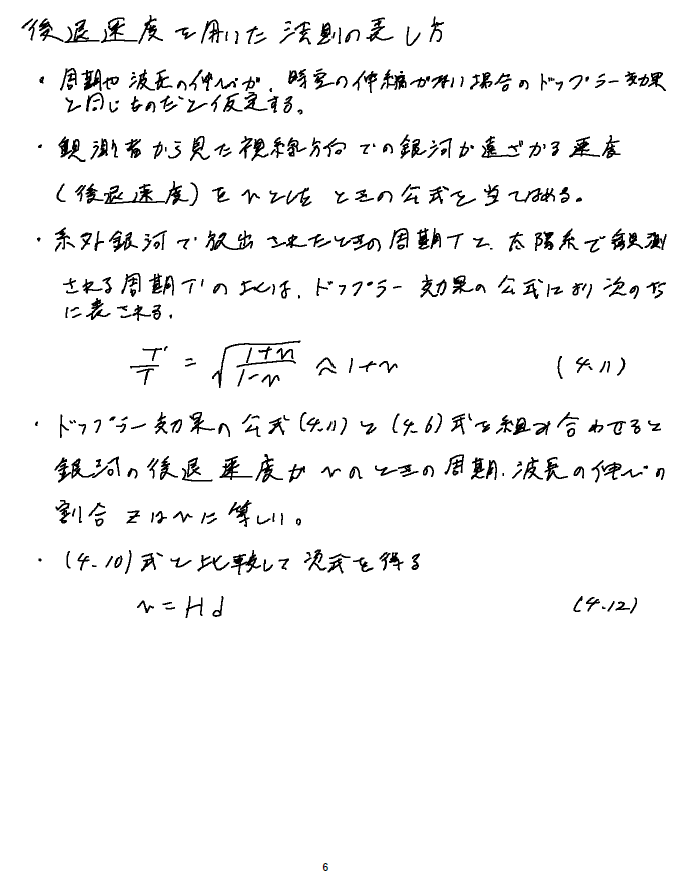 後退速度を用いた法則の表し方
・周期や波長の伸びが、時空の伸縮がない場合のドップラー効果
と同じものだと仮定する。
・観測者から見た視線方向での銀河が遠ざかる速度
(後退速度)をvとしたときの公式を当てはめる。
・系外銀河で放出されたときの周期Tと、太陽系で観測
される周期T'の比は、ドップラー効果の公式により次のよう
に表される。
T'/T = √((1+v)/(1-v)) ≈ 1+v (4.11)
・ドップラー効果の公式(4.11)と(4.6)式を組み合わせると
銀河の後退速度がvのときの周期、波長の伸びの
割合zはvに等しい。
・(4.10)式と比較して次式を得る
v = Hd (4.12)
6